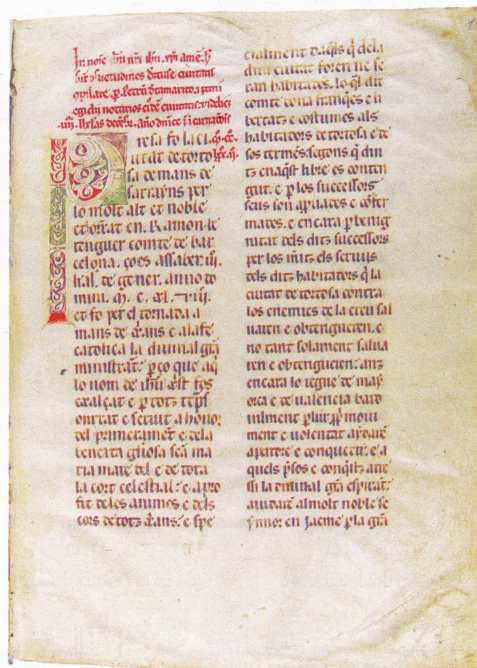 In noīe dñi nr̄i ihu. xpi amē. h̄
sūt ↄsuetudines dtuse ciuitatis
ↄpilate. p. petrum
egidii notarios eidē ciuitatis. videlicȝ
.iiii. kl̄as decēbr̄. año dñice īcarnacōis
.cͦ.cc.
lxx.ij.
Presa fo la ci
utat de torto
sa de mans de
sarrayns per
lo molt alt et noble
et honrat en. Ramon be
renguer comte de bar
celona. coes assaber. iij.
kal. de gener. anno do
mini. . c. xl. viij.
et fo per el tornada a
mans de xr̄ans e a la fe
catolica la diuinal gr̄a
ministrāt. p ço que aq̄
lo nom de ihū xr̄ist fos
exalçat e p totȝ tēps
onrrat e seruit a honor
del e de la
beneita gl̄iosa scā ma
ria mare del e de tota
la cort celestial. e a pro
fit de les animes e dels
cors de totȝ xr̄ans. e spe
cialment daq̄ls q̄ de la
dita ciutat foren ne se
ran habitadrs. lo q̄l dit
comte dona franq̄es e li
bertatȝ e costumes als
habitadors de tortosa e de
sos termēs. segons q̄ diu
tȝ en aq̄st libre es conten
gut. e p los successors
seus son apuades e cōfer
mades. e encara p benig
nitat dels ditȝ successors
per los mītȝ dls seruiis
dels ditȝ habitadors q̄ la
ciutat de tortosa contra
los enemics de la creu sal
uaren e obtengueren. e
no tant solament salua
ren e obtengueren. anȝ
encara lo regne de mayl
orca e de ualencia baro
nilment
ment e uiolentat aydarē
a pendre e conquerir. e a
quels p̄sos e conq̄itȝ axi
si la diuinal gr̄a espirāt.
aiudant al molt noble se
ynnor en Jacme p la gr̄a